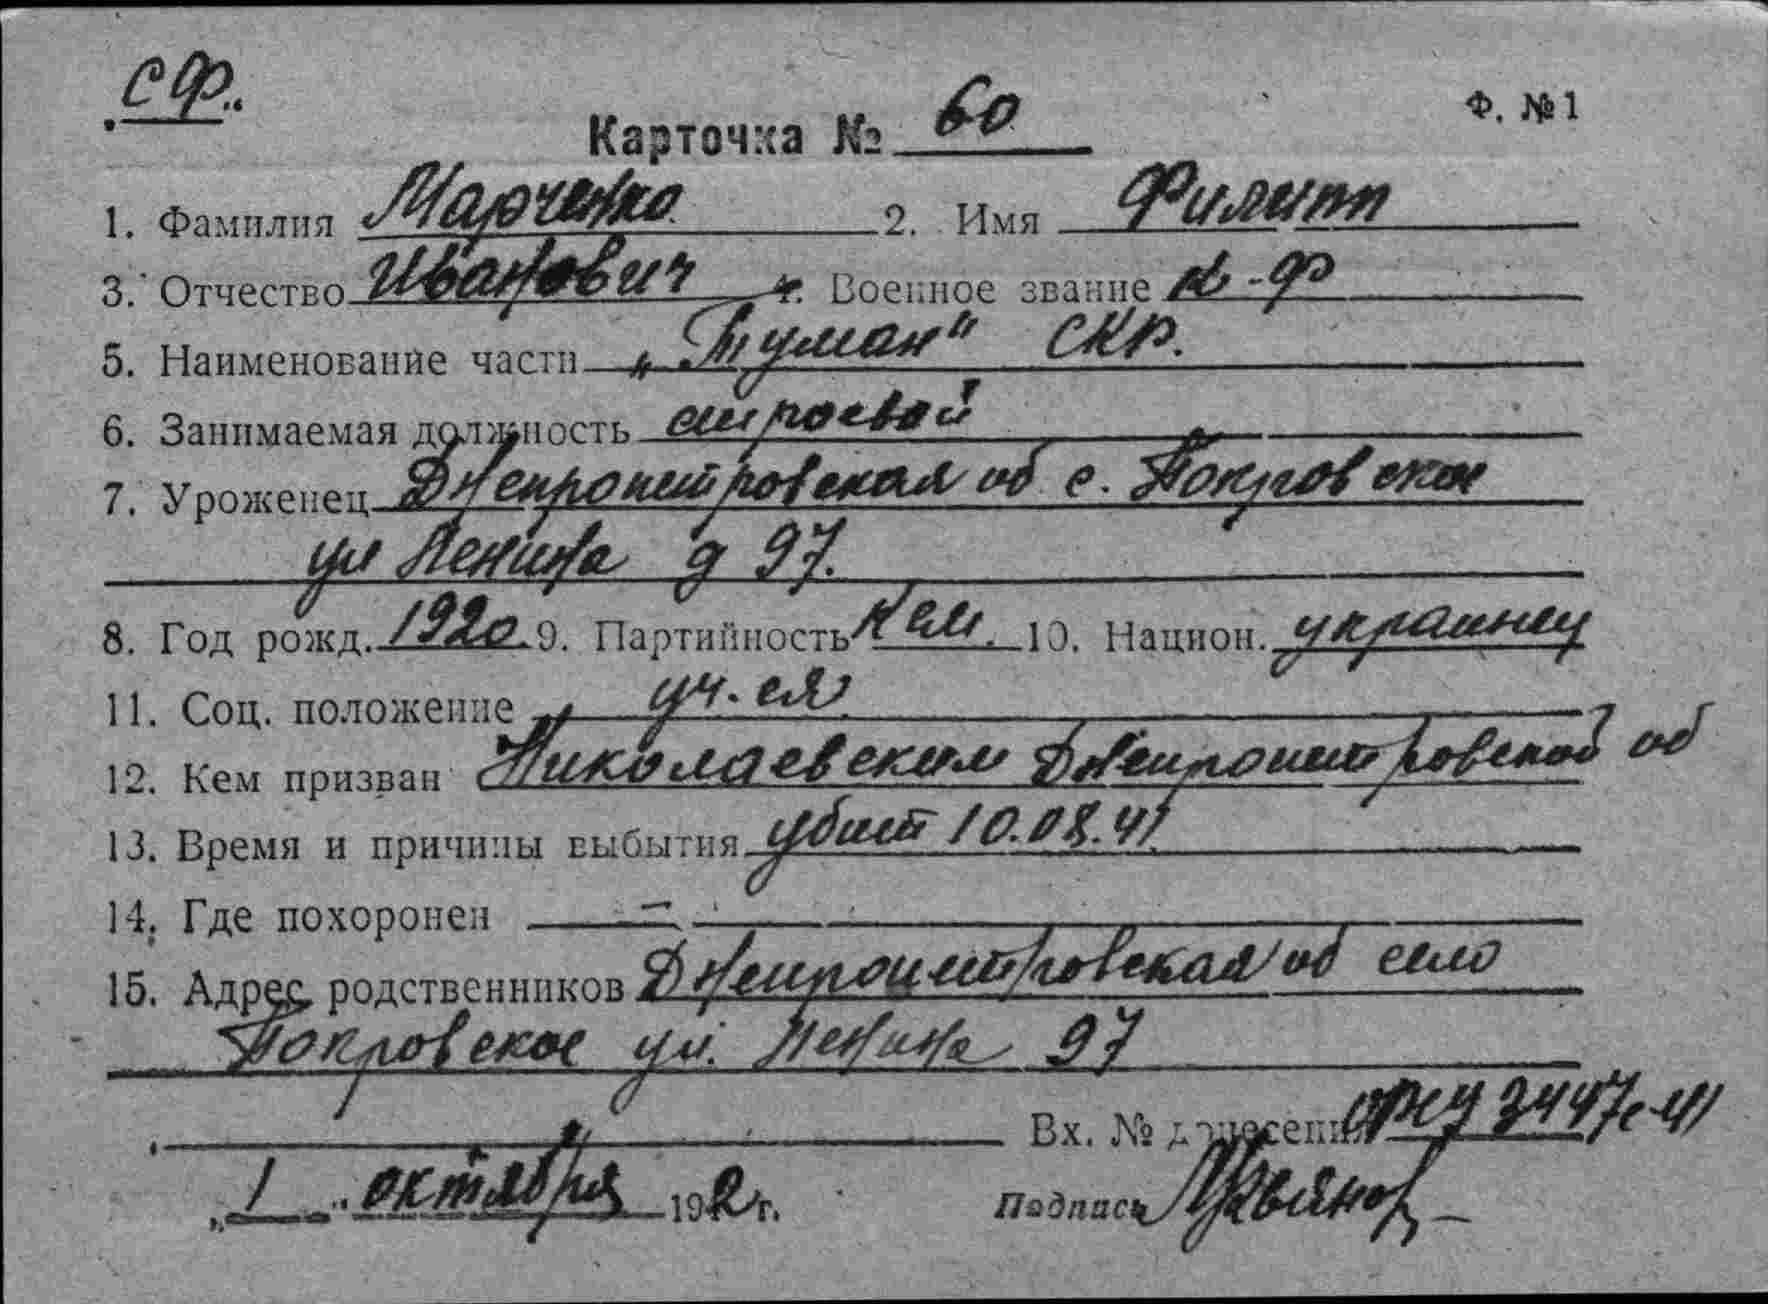 СФ.
Ф. №1
Карточка № 60
1. Фамилия Марченко 2. Имя Филипп
3. Отчество Иванович 4. Военное звание к-ф
5. Наименование части „Туман" СКР.
6. Занимаемая должность строевой
7. Уроженец Днепропетровская об с. Покровское
ул Ленина д 97.
8. Год рожд. 1920 9. Партийность 10. Национ. украинец
11. Соц. положение уч-ся
12. Кем призван Николаевским Днепропетровской об
13. Время и причины выбытия убит 10.08.41
14. Где похоронен —
15. Адрес родственников Днепропетровская об село
Покровское ул. Ленина 97
Вх. № донесения
„1" октября 19 г.
Подпись